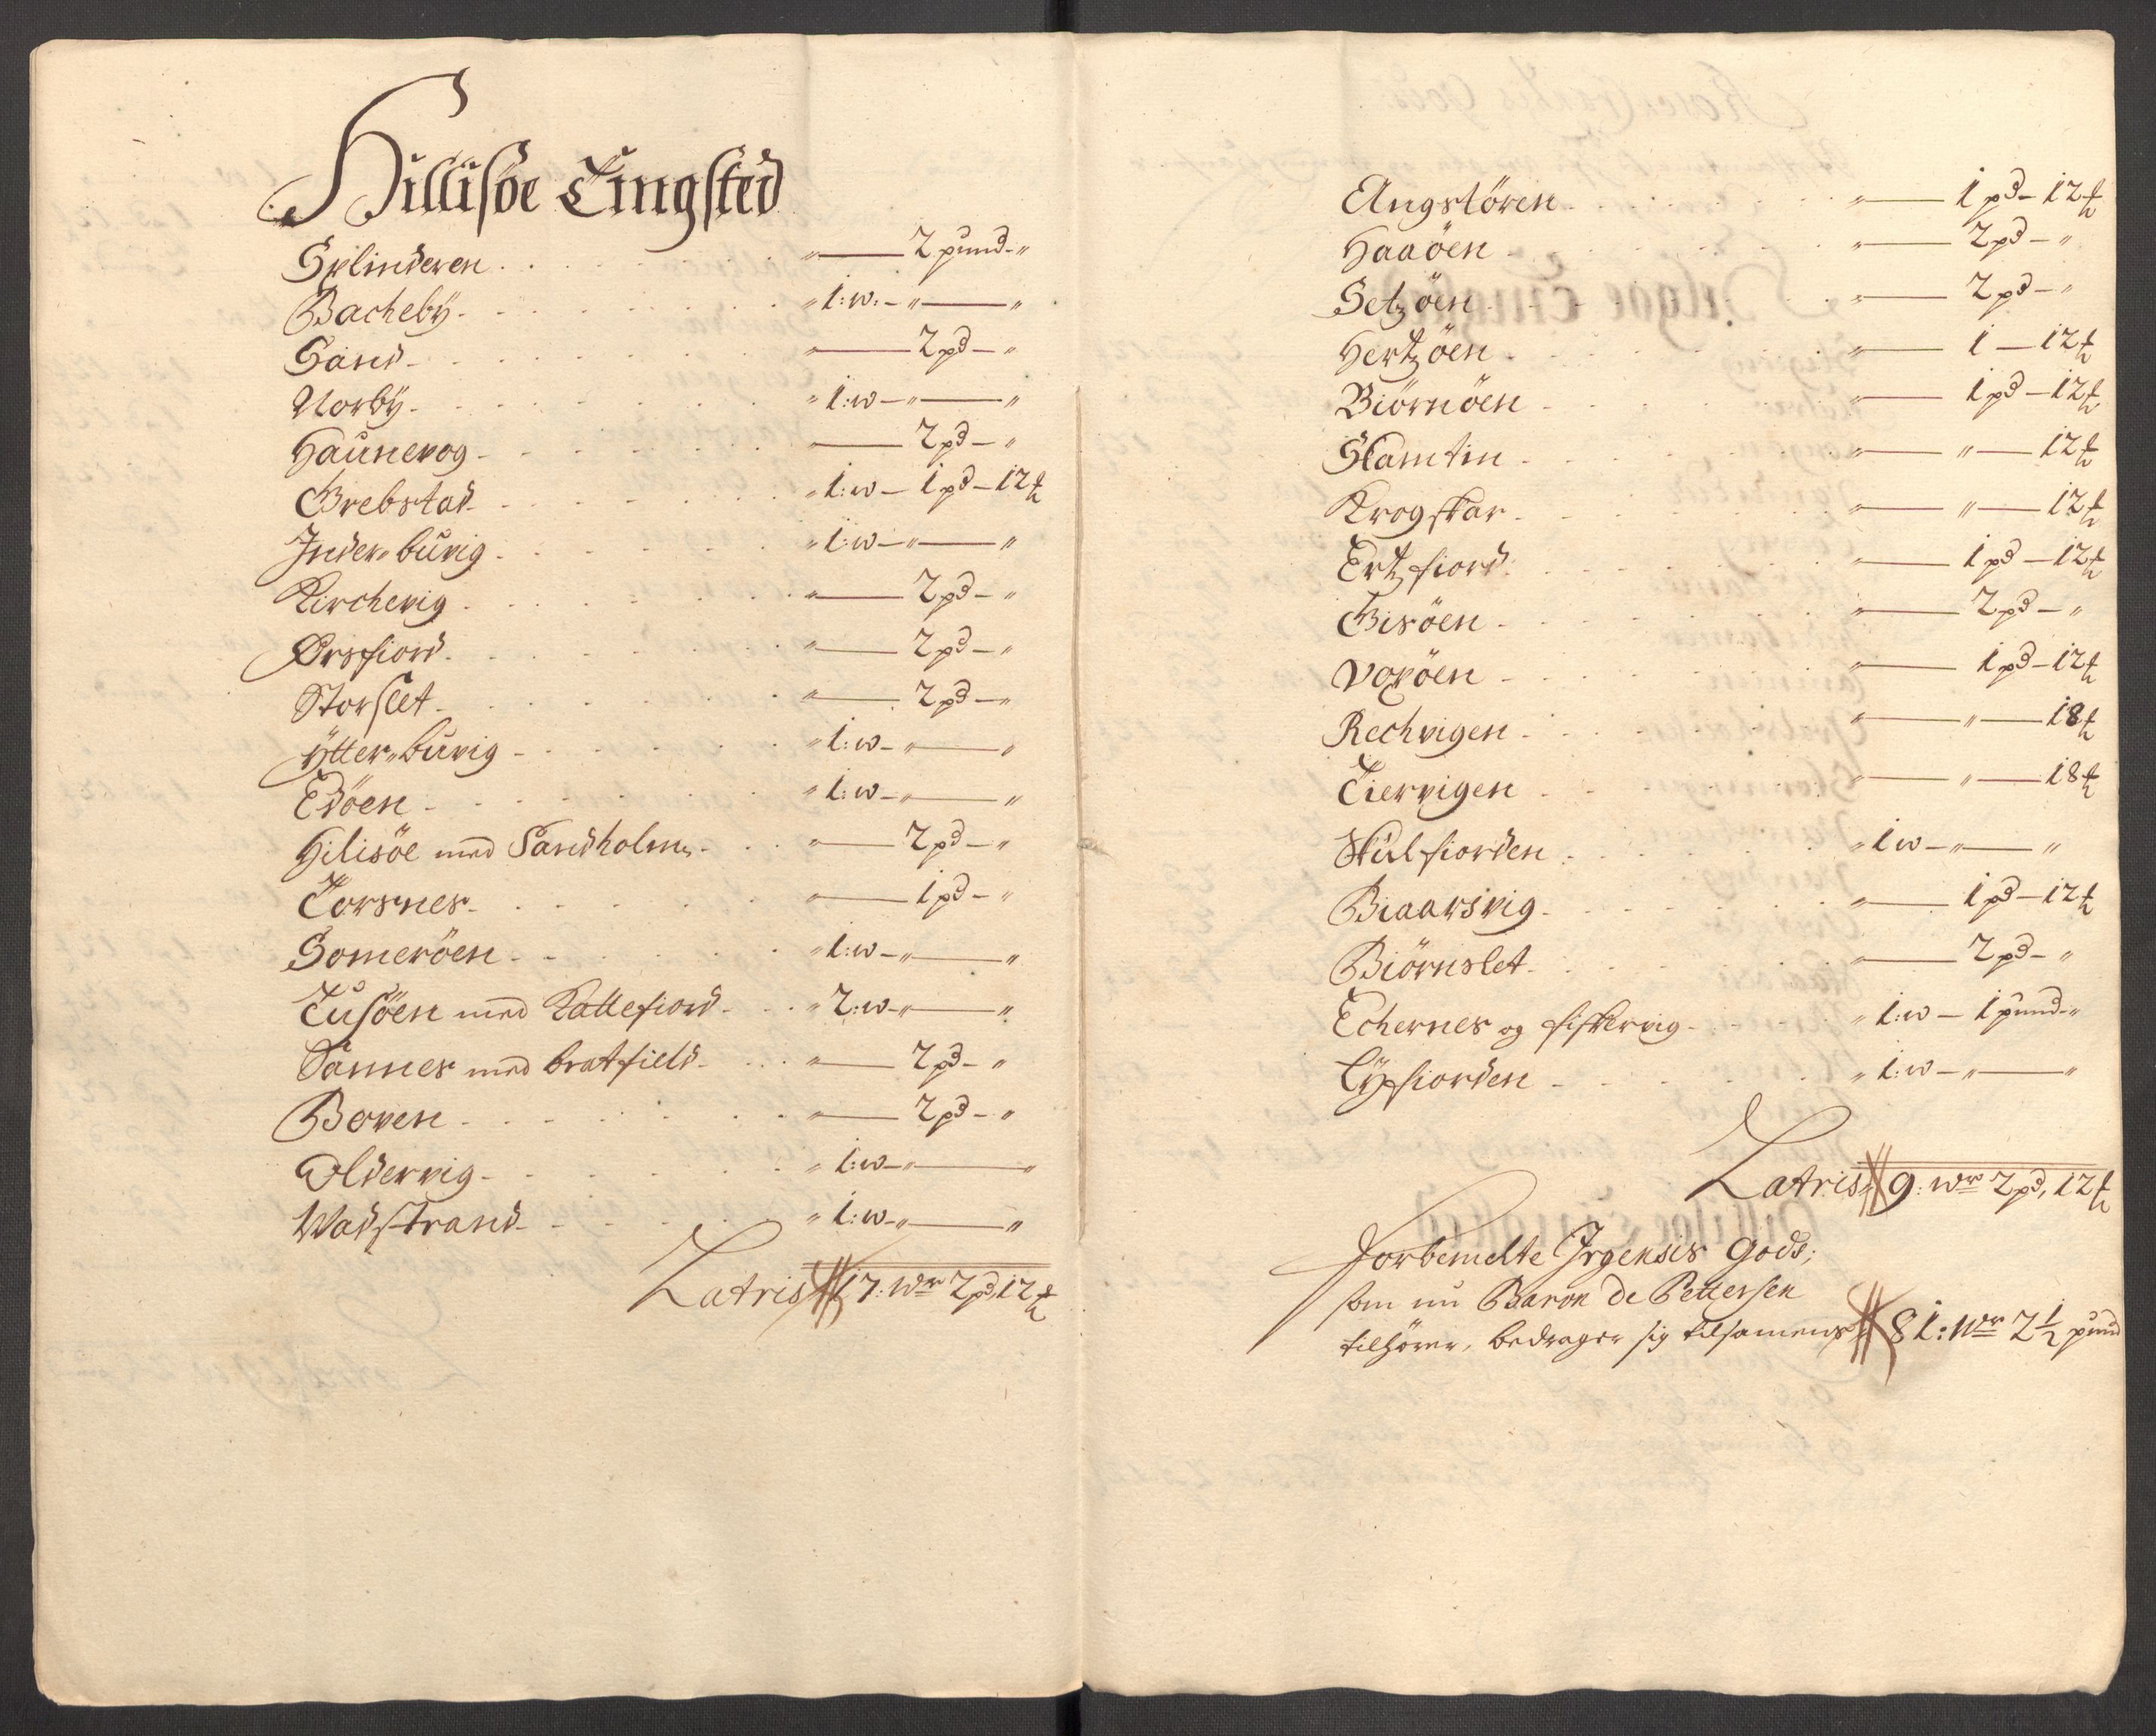 Hillisøe Tingsted
Splinderen . . . . . . " —— 2 pund - "
Bacheby . . . . . . " 1: w: - " —— "
Sand . . . . . . " —— 2 pd — "
Norby . . . . . . " 1: w — " —— "
Haunevog . . . . . . " —— 2 pd — "
Grebstad . . . . . . " 1: w — 1 pd — 12 ℔
Inder-buvig . . . . . . " 1: w — " —— "
Kirchevig . . . . . . " —— 2 pd — "
Ørsfiord . . . . . . " —— 2 pd — "
Storslet . . . . . . " —— 2 pd — "
Ytter-buvig . . . . . . " 1: w - " —— "
Edöen . . . . . . " 1: w — " —— "
Hilisöe med Sandholm . . " —— 2 pd — "
Torsnes . . . . . . " —— 1 pd — "
Someröen . . . . . . " 1: w — " —— "
Tusöen med Kattefiord . . " 2: w - " —— "
Sannes med bratfield . . " —— 2 pd — "
Boven . . . . . . " —— 2 pd — "
Oldervig . . . . . . " 1: w — " —— "
Wadstrand . . . . . . " 1: w - " —— "
Latris 17: wr 2 pd, 12 ℔
Angstören . . . . . . " —— 1 pd — 12 ℔
Haaöen . . . . . . " —— 2 pd — "
Setzöen . . . . . . " —— 2 pd — "
Hertzöen . . . . . . " —— 1 — 12 ℔
Biörnöen . . . . . . " —— 1 pd — 12 ℔
Skamtin . . . . . . " —— " —— 12 ℔
Krogskar . . . . . . " —— " —— 12 ℔
Ertzfiord . . . . . . " —— 1 pd — 12 ℔
Gisöen . . . . . . " —— 2 pd — "
Voxöen . . . . . . " —— 1 pd — 12 ℔
Rechvigen . . . . . . " —— " —— 18 ℔
Tiervigen . . . . . . " —— " —— 18 ℔
Skulfiorden . . . . . . " 1 w — " —— "
Biaarsvig . . . . . . " —— 1 pd — 12 ℔
Biörnslet . . . . . . " —— 2 pd — "
Echernes og fiskervig . . " 1: w — 1 pund - "
Lypfiorden . . . . . . " 1: w — " —— "
Latris 9: wr 2 pd, 12 ℔
Forbemelte Irgensis Gods;
som nu Baron de Pettersen
tilhörer, bedrager sig tilsamens 81: wr 2 1/2 pund